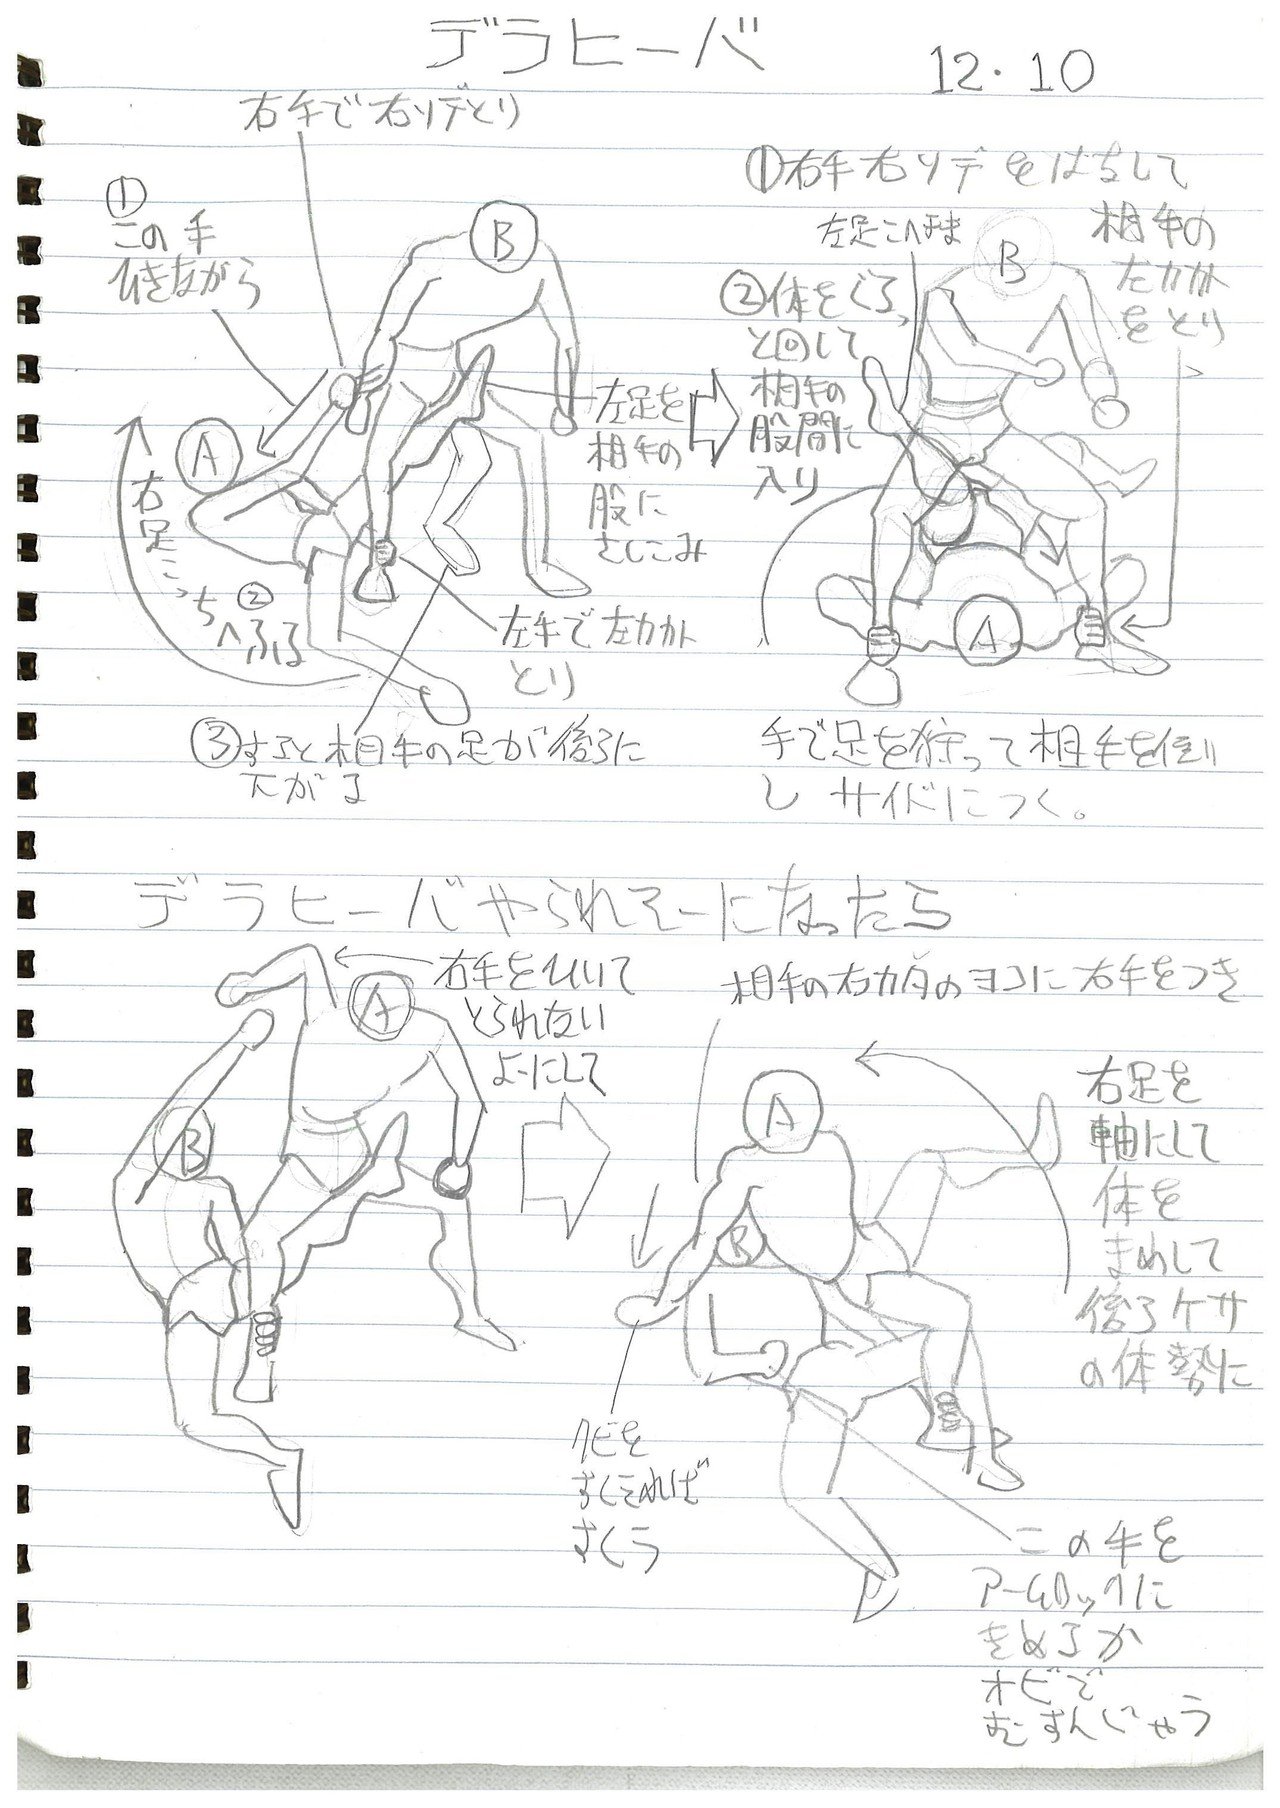 デラヒーバ
12.10
右手で右ソデとり
①
この手
ひきながら
B
A
右足こっち
②
へふる
左足を
相手の
股に
さしこみ
左手で左カカト
とり
③すると相手の足が後ろに
下がる
①右手右ソデをはなして
相手の
左カカト
をとり
左足このまま
②体をぐるっ
と回して
相手の
股間に
入り
B
A
手で足を狩って相手を倒
し サイドにつく。
デラヒーバやられそーになったら
右手をひいて
とられない
よーにして
A
B
相手の右カタのヨコに右手をつき
A
B
右足を
軸にして
体を
まわして
後ろケサ
の体勢に
クビを
すくえれば
すくう
この手を
アームロックに
きめるか
オビで
むすんじゃう